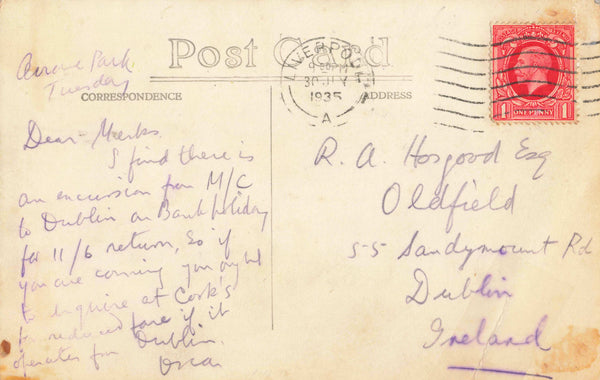 Post Card
Arrowe Park
Tuesday
CORRESPONDENCE
ADDRESS
LIVERPOOL
30 JY
1935
A
1 ONE PENNY 1
Dear
I find there is
an excursion from M/C
to Dublin on Bank holiday
for 11/6 return, So if
you are coming you ought
to inquire at Cook's
for reduced fare if it
operates from Dublin.
R. A. Hosgood Esq
Oldfield
55 Sandymount Rd
Dublin
Ireland